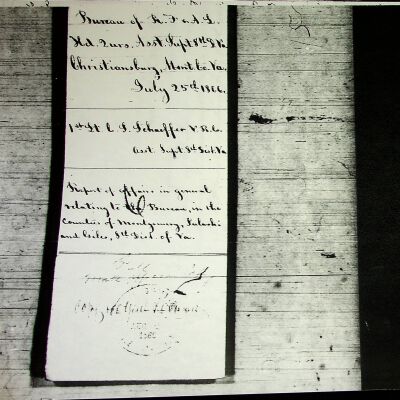 Bureau of R. F. & A. L.
Hd. Qurs. Asst. Supt 8th D. Va
Christiansburg, Mont. Co. Va.
July 25th 1866.
1st Lt C. S. Schaeffer V. R. C.
Asst. Supt 8th Dist. Va
Report of Affairs in general
relating to the Bureau, in the
Counties of Montgomery, Pulaski
and Giles, 8th Dist. of Va.